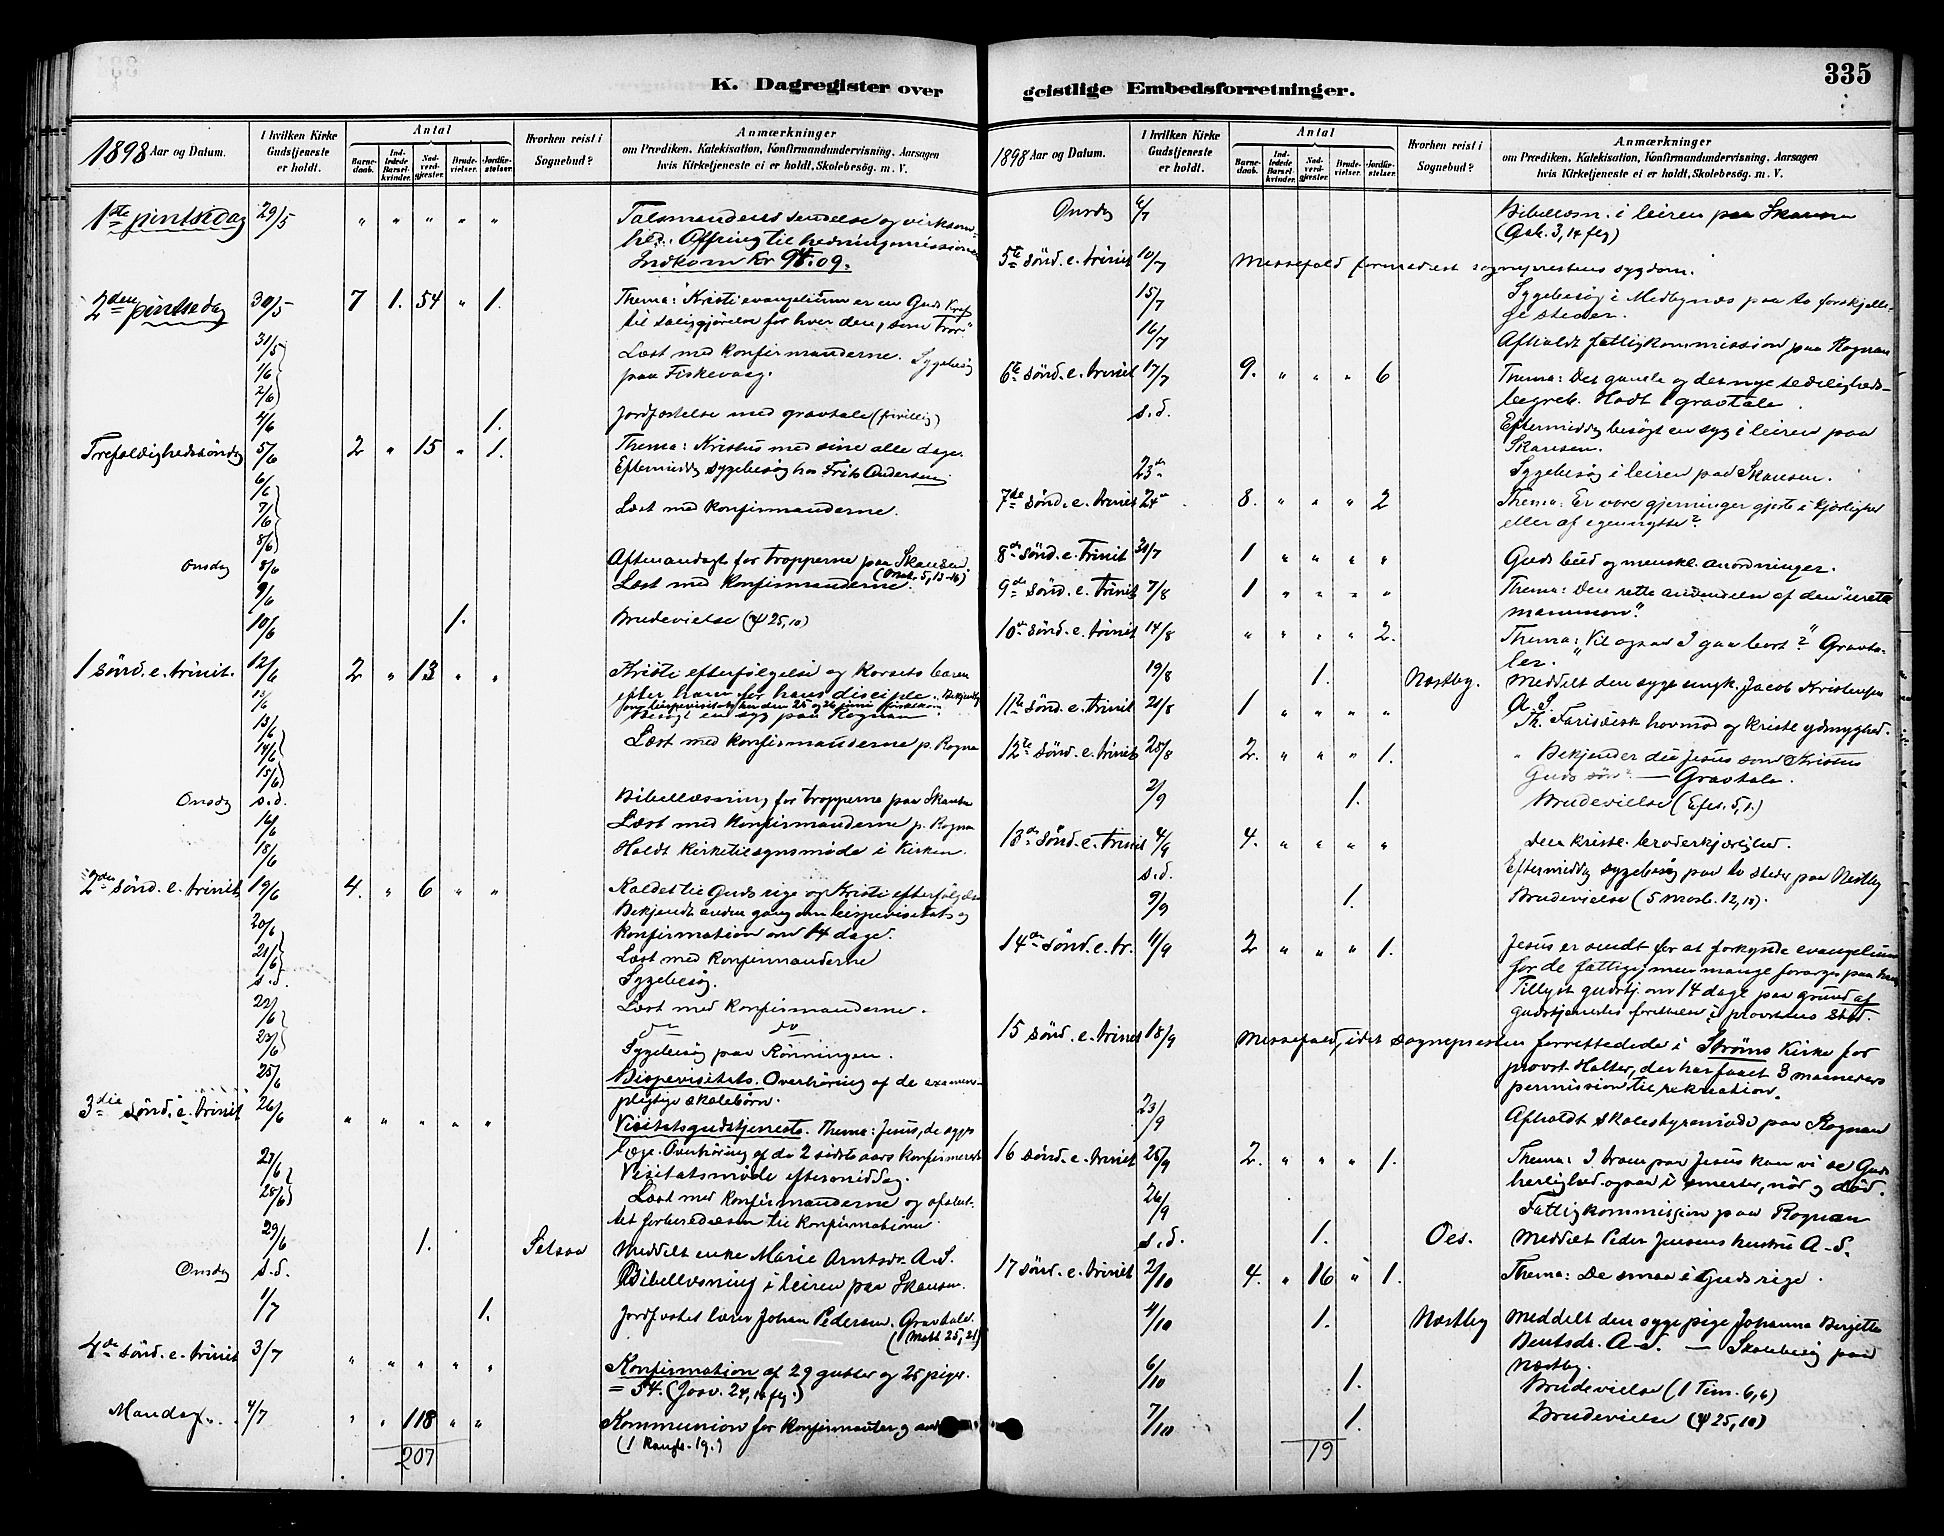 K. Dagregister over
1898 Aar og Datum.
I hvilken Kirke Gudstjeneste er holdt.
Antal
Barnedaab.
Indledede Barselkvinder.
Nadverdgjester.
Brudevielser.
Jordfæstelser.
Hvorhen reist i Sognebud?
Anmærkninger
om Prædiken, Katekisation, Konfirmandundervisning, Aarsagen
hvis Kirketjeneste ei er holdt, Skolebesøg. m. V.
1ste pintsedag 29/5 " " " " " Talsmandens sendelse og virksom-
hed. Offring til hedningemissionen
Indkom Kr 94.09.
2den pintsedag 30/5 7 1. 54 " 1. Thema: "Kristi evangelium er en Guds Kraft
til saliggjørelse for hver den, som tror"
31/5 Læst med konfirmanderne. Sygebesøg
1/6 paa Fiskevaag.
2/6
4/6 1. Jordfæstelse med gravtale (frivillig)
Trefoldighedssøndag 5/6 2 " 15 " 1. Thema: Kristus med sine alle dage.
Eftermiddag sygebesøg hos Andersen
6/6
7/6 Læst med konfirmanderne.
8/6
Onsdag 8/6 Aftenandagt for tropperne paa Skansen.
(Math. 5, 13-16)
9/6 Læst med konfirmanderne.
10/6 1. Brudevielse (ψ 25,10)
1 sønd. e. trinit. 12/6 2 " 13 " " Kristi efterfølgelse og Korsets
efter ham for hans disciple. Bekjendtg.
om bispevisitats den 25 og 26 juni
13/6 Besøgt en syg paa Rognan.
13/6
14/6 Læst med konfirmanderne p. Rognan
15/6
Onsdag s.d. Bibellæsning for tropperne paa Skansen
16/6 Læst med konfirmanderne p. Rognan
18/6 Holdt Kirketilsynsmøde i Kirken.
2den sønd. e. trinit. 19/6 4. " 6 " " Kaldet til Guds rige og Kristi efterfølgelse
Bekjendt anden gang om bispevisitats og
20/6 konfirmation om 14 dage.
21/6 Læst med konfirmanderne
s.d. Sygebesøg.
22/6 Læst med konfirmanderne.
do do
23/6 Sygebesøg paa Rønningen.
25/6 Bispevisitats. Overhøring af de examens-
pligtige skolebørn.
3die sønd. e. trinit 26/6 " " " " " Visitatsgudstjeneste. Thema: Jesus, de syges
læge. Overhøring af de 2 sidste aars konfirmerede
27/6 Visitatsmøde eftermiddag.
28/6 Læst med konfirmanderne og afslut-
tet forberedelsen til konfirmationen.
29/6 1. Setsaa Meddelt enke Marie Arntsdr. A-S.
Onsdag s.d. Bibellæsning i leiren paa Skansen.
1/7 1. Jordfæstet lærer Johan Pedersen. Gravtale.
(Math. 25, 21)
4de sønd. e. trinit 3/7 " " " " " Konfirmation af 29 gutter og 25 piger.
= 54. (Josv. 24, 16 flg.)
Mandag 4/7 " " 118 " " Kommunion for konfirmanter og
207
geistlige Embedsforretninger.
335
1898 Aar og Datum.
I hvilken Kirke Gudstjeneste er holdt.
Antal
Barnedaab.
Indledede Barselkvinder.
Nadverdgjester.
Brudevielser.
Jordfæstelser.
Hvorhen reist i Sognebud?
Anmærkninger
om Prædiken, Katekisation, Konfirmandundervisning, Aarsagen
hvis Kirketjeneste ei er holdt, Skolebesøg. m. V.
Onsdag 6/7 Bibellæsn. i leiren paa Skansen
5te sønd. e. trinit 10/7 Messefald formedelst sogneprestens sygdom.
15/7 Sygebesøg i Medbynæs paa to forskjelli-
ge steder.
16/7 Afholdt fattigkommission paa Rognan
6te sønd. e. trinit 17/7 9. " " " 6 Thema: Det gamle og det nye sædeligheds-
begreb. Holdt 1 gravtale.
s.d. Eftermiddag besøgt en syg i leiren paa
Skansen.
23de Sygebesøg i leiren paa Skansen.
7de sønd. e. trinit 24de 8. " " " 2 Thema: Er vore gjerninger gjorte i kjærlighed
eller af egennytte?
8de sønd. e. trinit 31/7 1 " " " " Guds bud og menskl. anordninger.
9de sønd. e. trinit 7/8 1 " " " " Thema: Den rette anvendelse af den "urette
mammon".
10de sønd. e. trinit 14/8 " " " " 2. Thema: "Vil ogsaa I gaa bort?" Gravta-
ler.
19/8 1. Næstby. Meddelt den syge ungk. Jacob Kristensen
A-S.
11te sønd. e. trinit 21/8 1 " " " " Th. Farisæisk hovmod og kristl. ydmyghed.
12te sønd. e. trinit 28/8 2. " " " 1. " Bekjender du Jesus som Kristus
Guds søn? — Gravtale.
2/9 1. Brudevielse (Efes. 5,1.)
13de sønd. e. trinit 4/9 4. " " " " Den kristl. broderkjærlighed.
s.d. Eftermiddag sygebesøg paa to steder paa Næstby
9/9 1. Brudevielse (5 Moseb. 12,18).
14de sønd. e. tr. 11/9 2 " " " 1. Jesus er sendt for at forkynde evangelium
for de fattige, men mange forarges paa ham
Tillyst gudstj. om 14 dage paa grund af
gudstjenestes forrettelse i provstens sted.
15 sønd. e. trinit 18/9 Messefald, idet sognepresten forrettede i Strøms Kirke for
provst Halter, der har faaet 3 maaneders
permission til rekreation.
23/9 Afholdt skolestyremøde paa Rognan
16 sønd. e. trinit 25/9 2. " " " 1. Thema: I troen paa Jesus kan vi se Guds
herlighed ogsaa i smerter, nød og død.
26/9 Fattigkommission paa Rognan
s.d. 1. Oes. Meddelt Peder Jensens hustru A-S.
17 sønd. e. trinit 2/10 4. " 16 " 1. Thema: De smaa i Guds rige.
4/10 1. Næstby Meddelt den syge pige Johanna Bergitte
Bentsdr. A-S. — Skolebesøg paa
Næstby.
6/10 1. Brudevielse (1 Tim. 6,6)
7/10 1. Brudevielse (ψ 25,10)
19